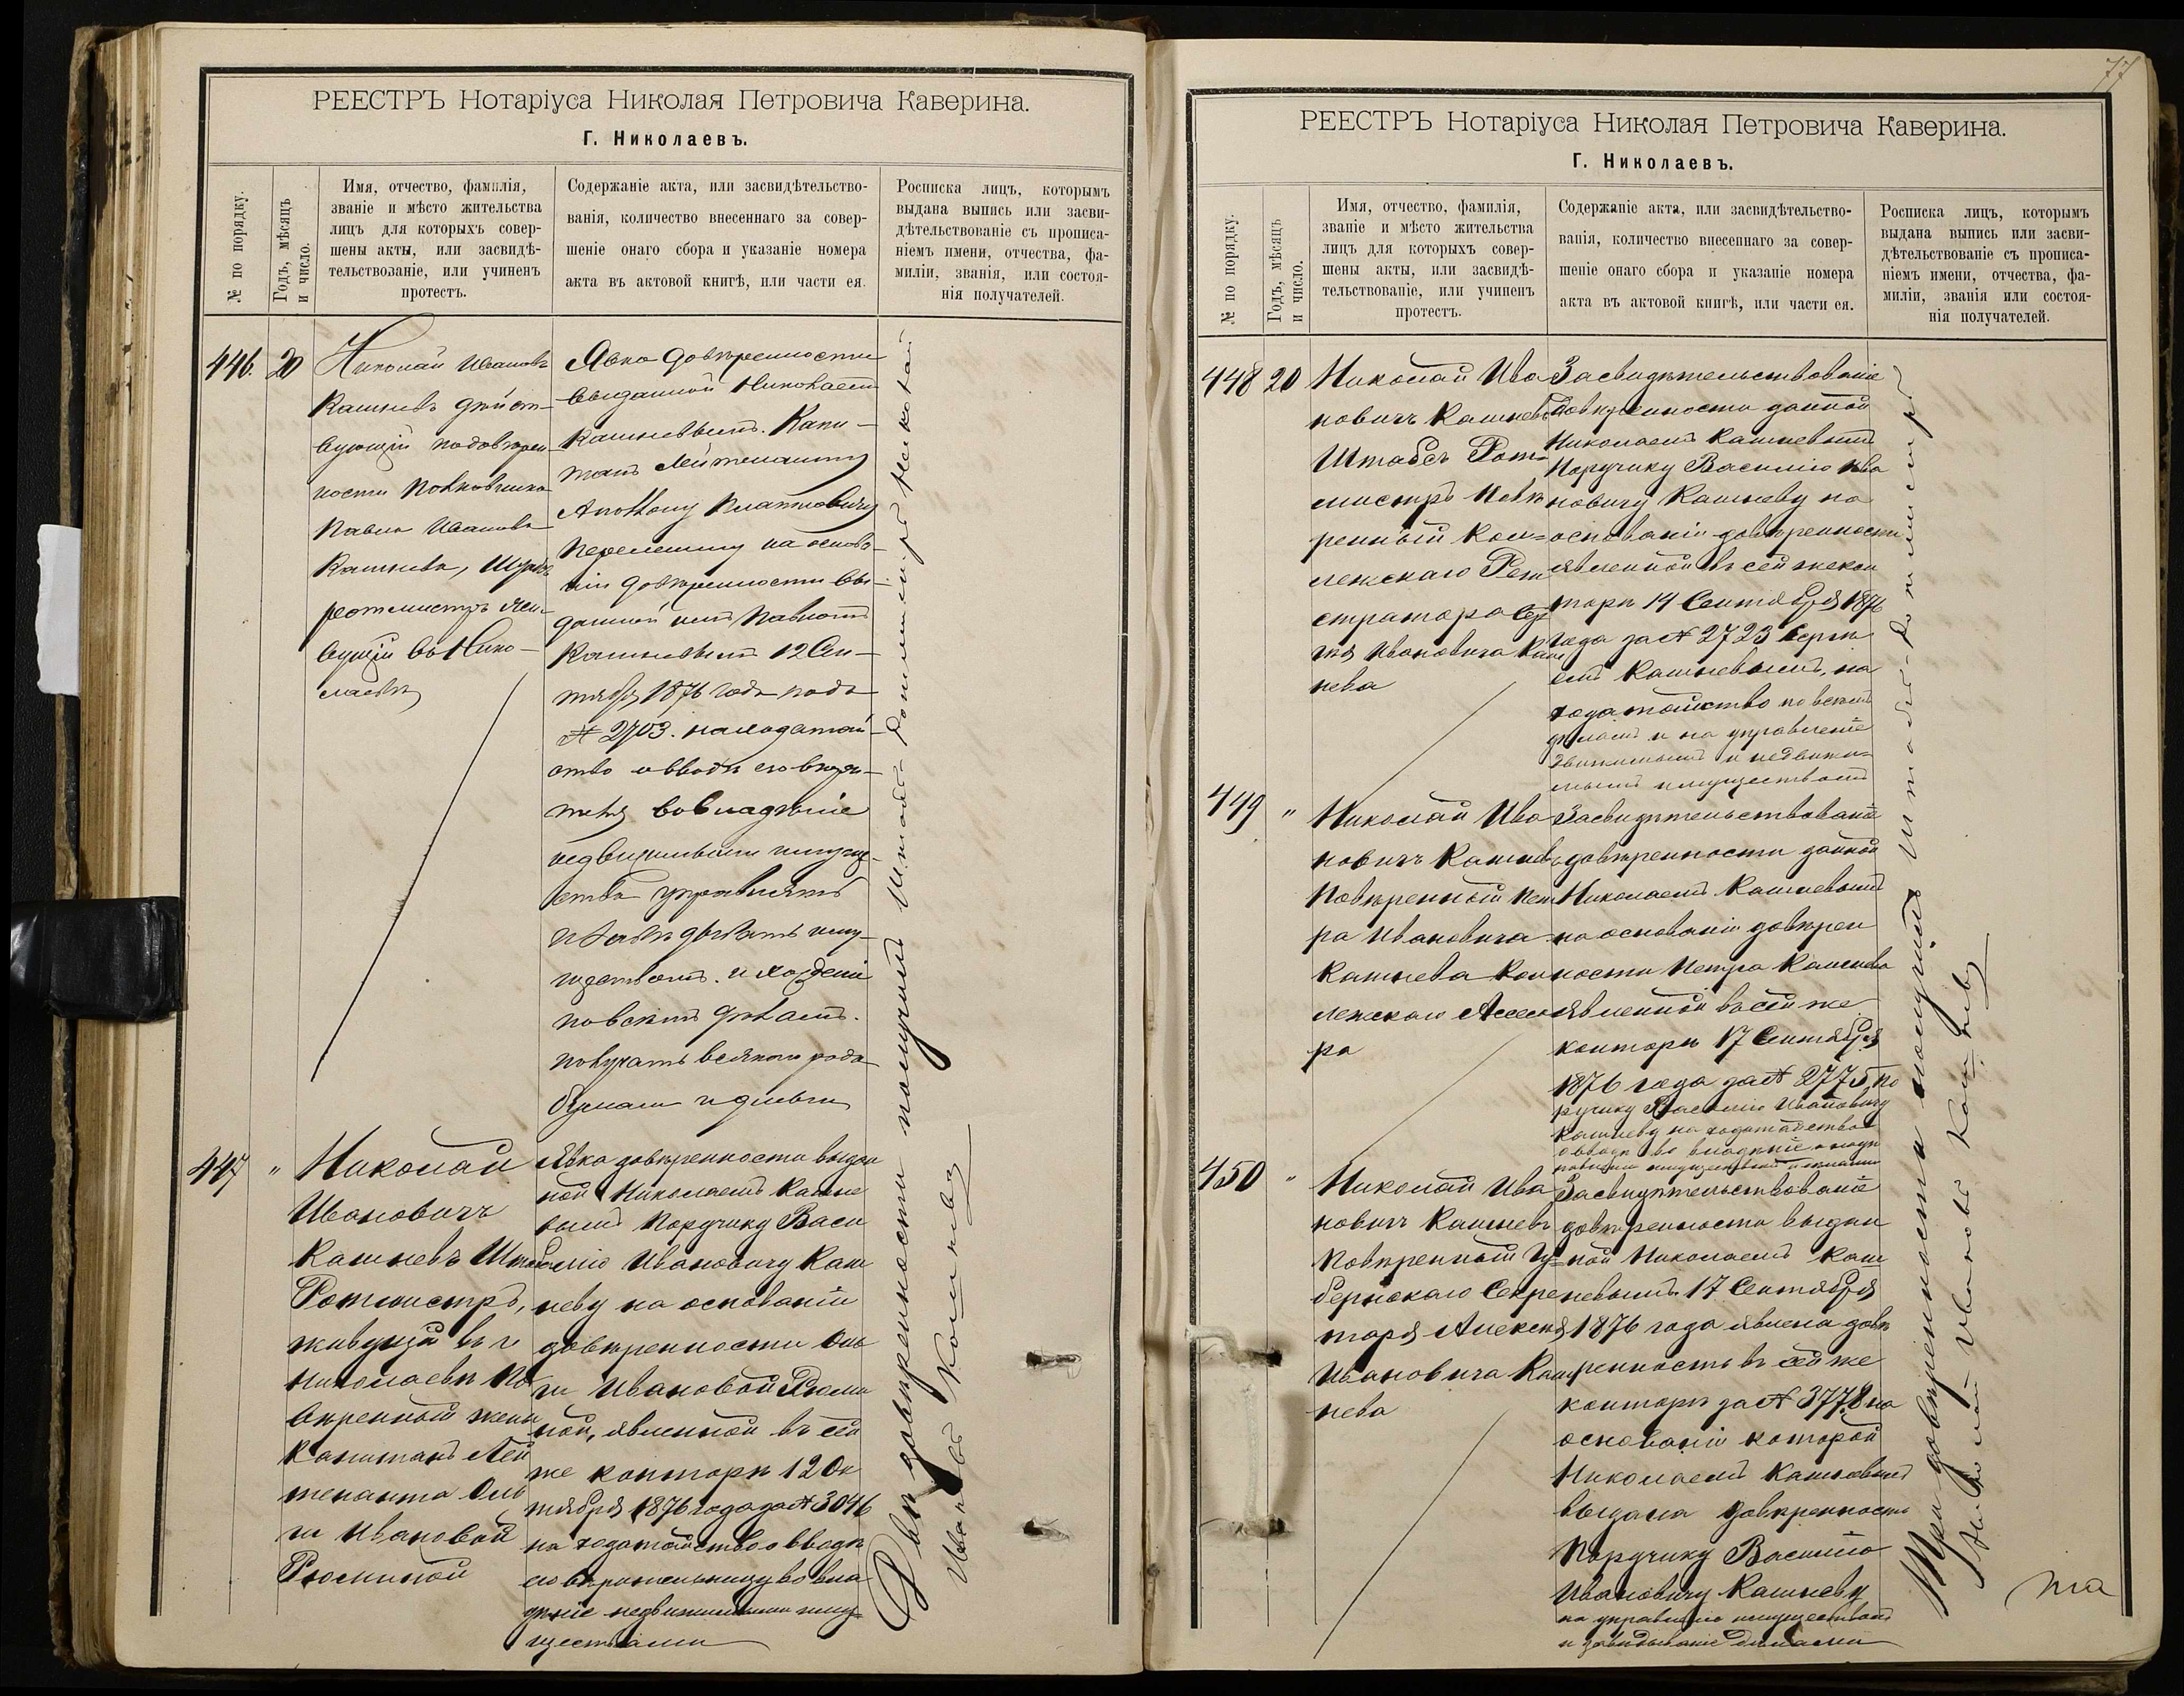 РЕЕСТРЪ Нотаріуса Николая Петровича Каверина.
Г. Николаевъ.
№ по порядку.
Годъ, мѣсяцъ
и число.
Имя, отчество, фамилія,
званіе и мѣсто жительства
лицъ для которыхъ совер-
шены акты, или засвидѣ-
тельствованіе, или учиненъ
протестъ.
Содержаніе акта, или засвидѣтельство-
ванія, количество внесеннаго за совер-
шеніе онаго сбора и указаніе номера
акта въ актовой книгѣ, или части ея.
Росписка лицъ, которымъ
выдана выпись или засви-
дѣтельствованіе съ прописа-
ніемъ имени, отчества, фа-
миліи, званія, или состоя-
нія получателей.
446.
20
Николай Ивановъ
Кашневъ дѣйст-
вующій по довѣрен-
ности Полковника
Павла Иванова
Кашнева, Штабъ
ротмистръ жи-
вущій въ Нико-
лаевѣ
Явка довѣренности
выданной Николаемъ
Кашневымъ. Капи-
танъ Лейтенанту
Платоновичу
на основа-
ніи довѣренности вы-
данной имъ Павломъ
Кашневымъ 12 Сен-
тября 1876 года подъ
№ 2703. на ходатай-
ство о вводѣ его довѣри-
теля во владѣніе
недвижимымъ имуще-
ства управлять
и завѣдывать иму-
ществомъ. и хожденіе
по всѣмъ дѣламъ.
получать всякаго рода
бумаги и деньги
447
"
Николай
Ивановичъ
Кашневъ Штабъ
Ротмистръ,
живущій въ г
Николаевѣ По
вѣренный жены
Капитанъ Лей
тенанта Оль
ги Ивановой
Рюминой
Явка довѣренности выдан
ной Николаемъ Кашне
вымъ Поручику Васи
лію Ивановичу Каш
неву на основаніи
довѣренности Оль
ги Ивановой Рюми
ной, явленной въ сей
же конторѣ 12 Ок
тября 1876 года за № 3046
на ходатайство о вводѣ
его вѣрительницу во вла
дѣніе недвижимыми иму-
ществами
Двѣ довѣренности получилъ Штабсъ-Ротмистръ Николай
Ивановъ Кашневъ
77
РЕЕСТРЪ Нотаріуса Николая Петровича Каверина.
Г. Николаевъ.
№ по порядку.
Годъ, мѣсяцъ
и число.
Имя, отчество, фамилія,
званіе и мѣсто жительства
лицъ для которыхъ совер-
шены акты, или засвидѣ-
тельствованіе, или учиненъ
протестъ.
Содержаніе акта, или засвидѣтельство-
ванія, количество внесеннаго за совер-
шеніе онаго сбора и указаніе номера
акта въ актовой книгѣ, или части ея.
Росписка лицъ, которымъ
выдана выпись или засви-
дѣтельствованіе съ прописа-
ніемъ имени, отчества, фа-
миліи, званія или состоя-
нія получателей.
448
20
Николай Ива
новичъ Кашневъ
Штабсъ Рот-
мистръ Повѣ
ренный Кол-
лежскаго Реги
стратора Сер
гѣя Ивановича Каш
нева
Засвидѣтельствованіе
довѣренности данной
Николаемъ Кашневымъ
Поручику Василію Ива
новичу Кашневу на
основаніи довѣренности
явленной въ сей же кон
торѣ 14 Сентября 1876
года за № 2723 Сергѣ
емъ Кашневымъ, на
ходатайство по всѣмъ
дѣламъ и на управленіе
движимымъ и недвижи-
мымъ имуществомъ
449
"
Николай Ива
новичъ Кашневъ
Повѣренный Пет
ра Ивановича
Кашнева Кол
лежскаго Ассесо
ра
Засвидѣтельствованіе
довѣренности данной
Николаемъ Кашневымъ
на основаніи довѣрен
ности Петра Кашнева
явленной въ сей же
конторѣ 17 Сентября
1876 года за № 2775, По
ручику Василію Ивановичу
Кашневу на ходатайство
о вводѣ во владѣніе
450
"
Николай Ива
новичъ Кашневъ
Повѣренный Гу-
бернскаго Секре
таря Алексѣя
Ивановича Каш
нева
Засвидѣтельствованіе
довѣренности выдан
ной Николаемъ Каш
невымъ. 17 Сентября
1876 года явлена довѣ
ренность въ сей же
конторѣ за № 3778 на
основаніи которой
Николаемъ Кашневымъ
выдана довѣренность
Поручику Василію
Ивановичу Кашневу
на управленіе имуществомъ
и завѣдываніе дѣлами
Три довѣренности получилъ Штабсъ-Ротмистръ
Николай Ивановъ Кашневъ
та